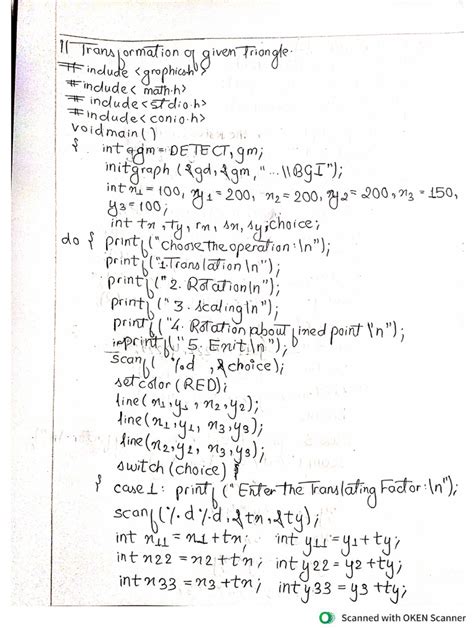 // Transformation of given Triangle.
# include <graphics.h>
# include < math.h>
# include <stdio.h>
# include <conio.h>
void main ( )
{ int gm = DETECT, gm;
initgraph (&gd, &gm, "...\\BGI");
int x1 = 100, y1 = 200, x2 = 200, y2 = 200, x3 = 150,
y3 = 100;
int tx, ty, rx, sx, sy, choice;
do { printf ("Choose the operation :\n");
printf ("1. Translation \n");
printf ("2. Rotation \n");
printf ("3. scaling \n");
printf ("4. Rotation about fixed point \n");
printf ("5. Exit. \n");
scanf ( %d , &choice);
set color (RED);
line (x1, y1 , x2, y2);
line (x1, y1, x3, y3);
line (x2, y2, x3, y3);
switch (choice) {
{ case 1: printf ("Enter the Translating Factor :\n");
scanf (%d %d, &tx, &ty);
int x11 = x1 + tx; int y11 = y1 + ty;
int x22 = x2 + tx; int y22 = y2 + ty;
int x33 = x3 + tx; int y33 = y3 + ty;
Scanned with OKEN Scanner